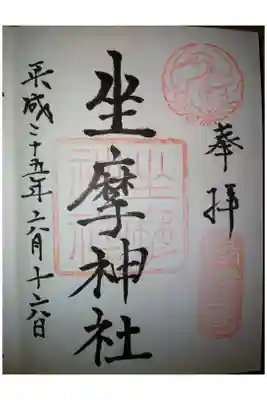 奉拝
坐摩神社
平成二十五年六月十六日